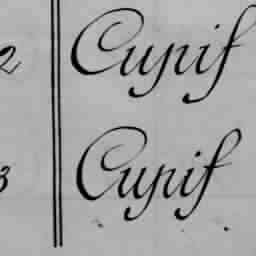 2 Cupif
3 Cupif